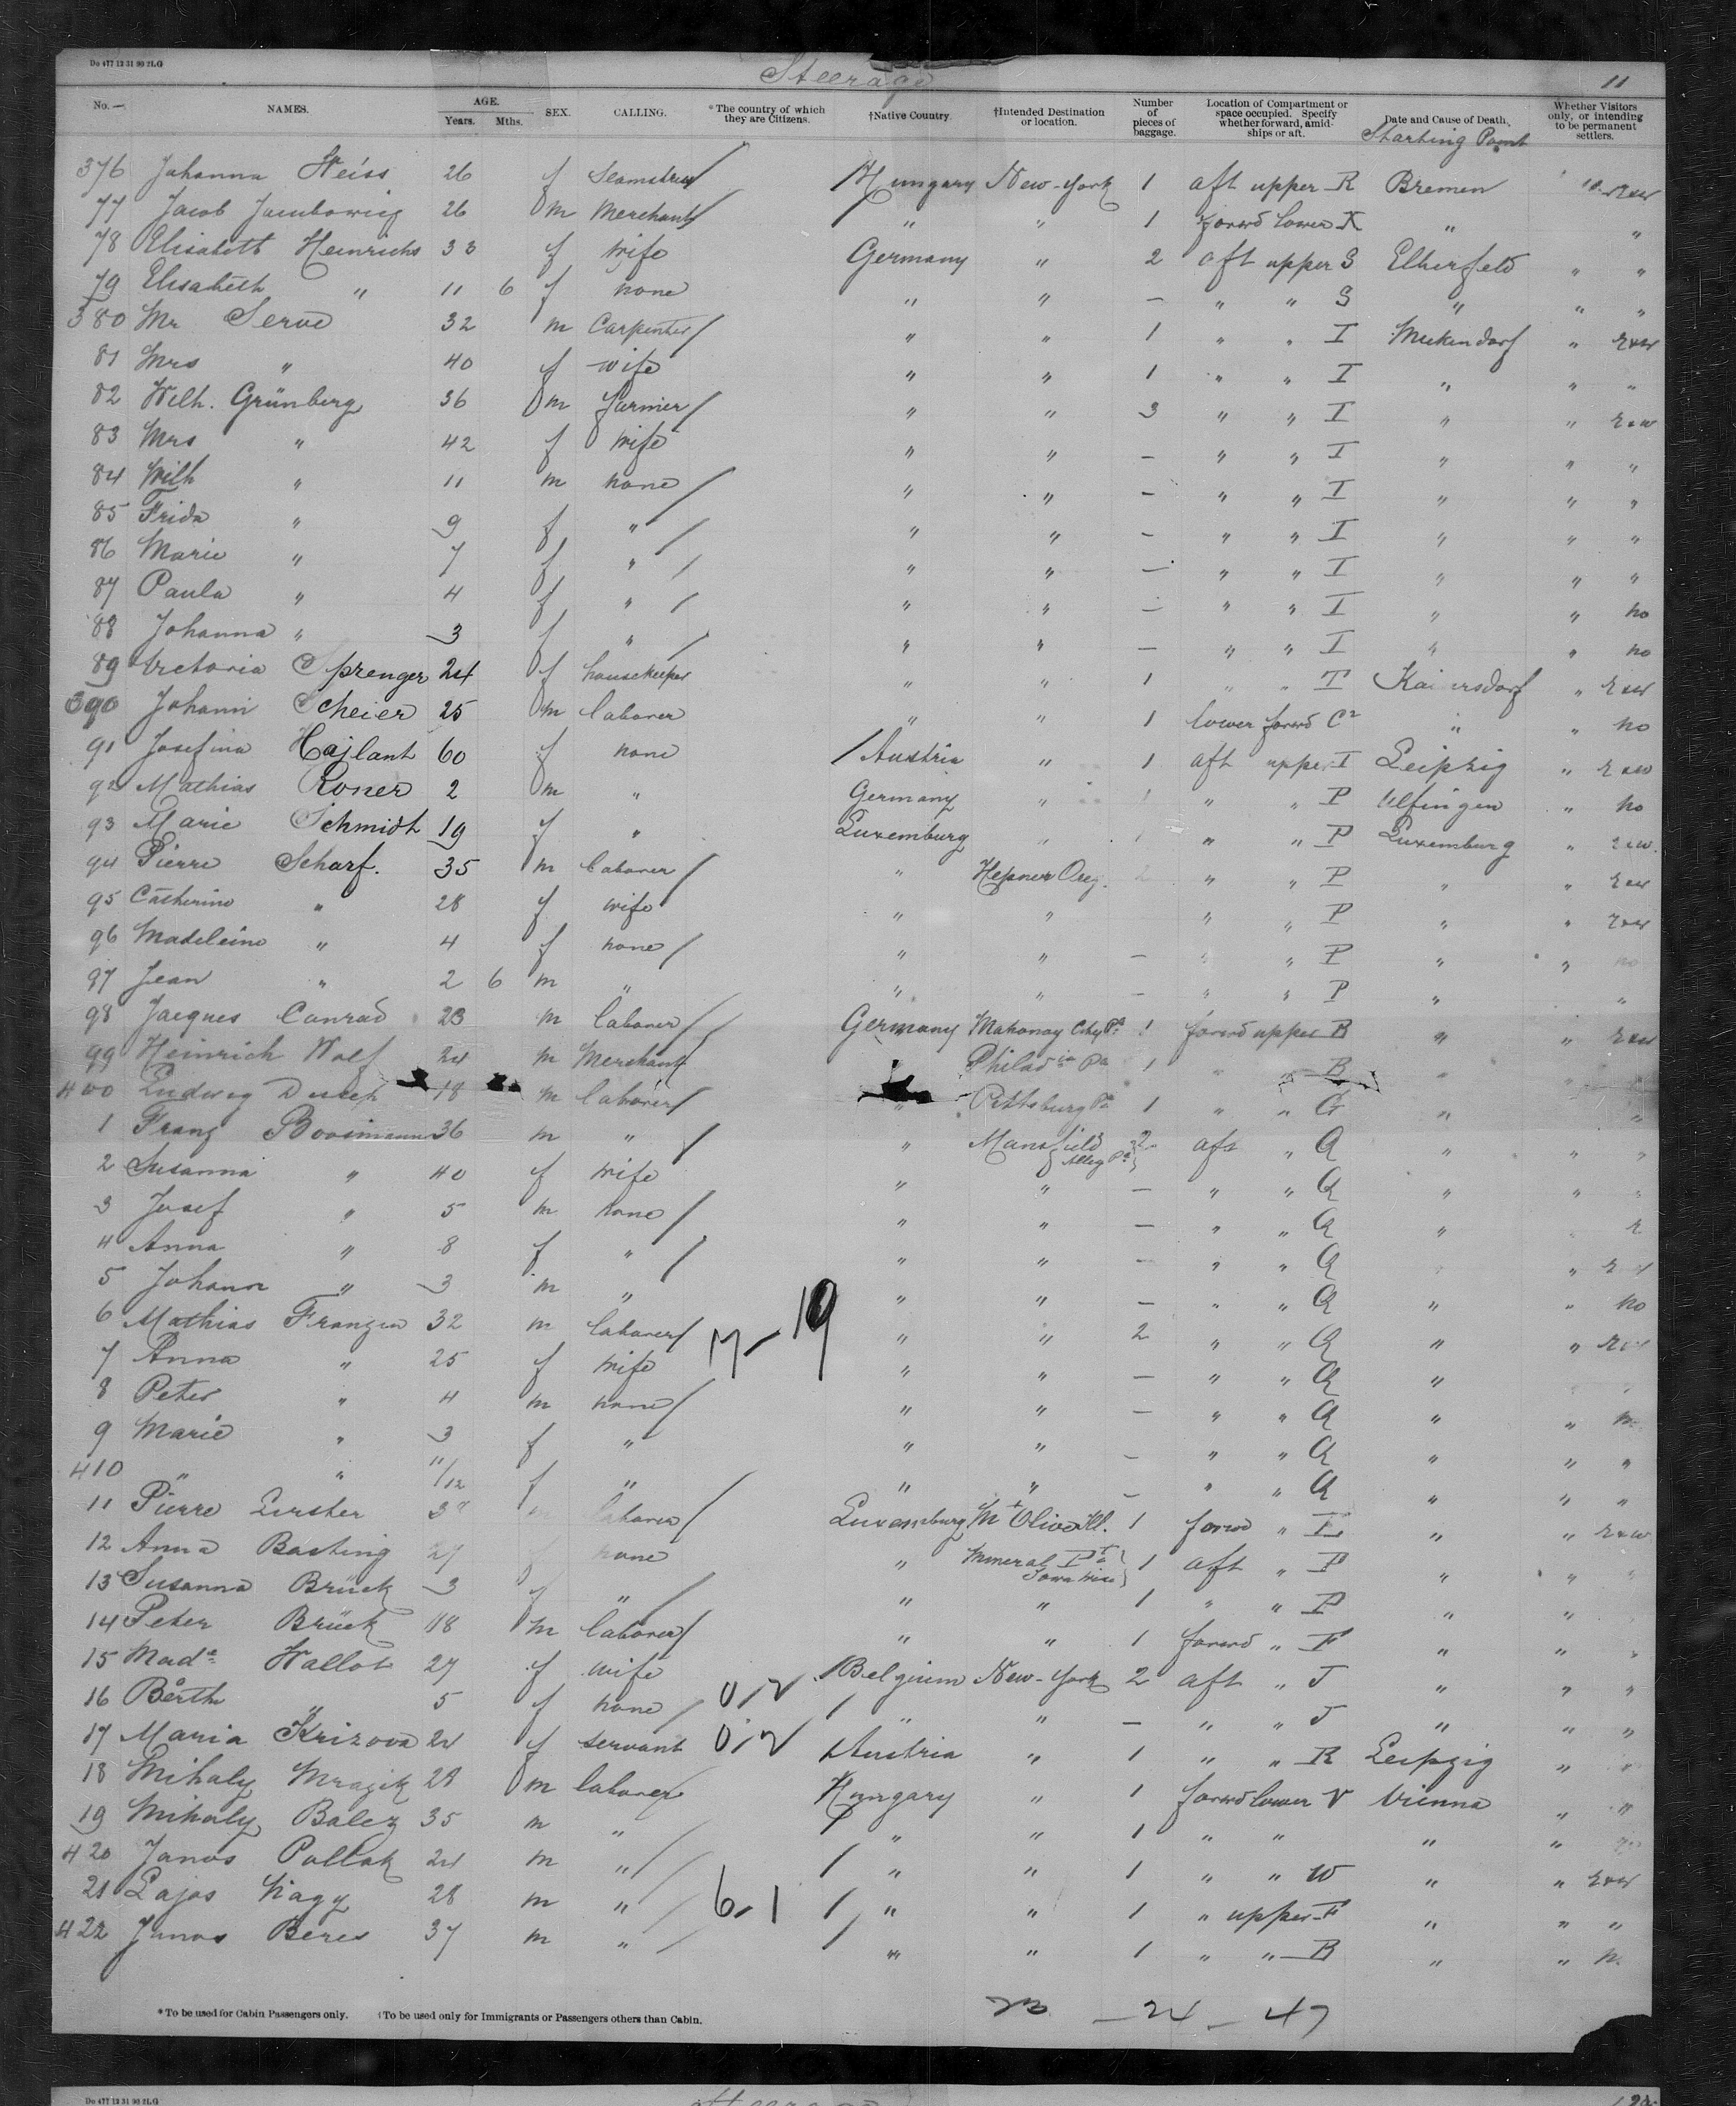 Do 477 12 31 90 2LG
Steerage 11
No. — NAMES. AGE. Years. Mths. SEX. CALLING. *The country of which they are Citizens. †Native Country. †Intended Destination or location. Number of pieces of baggage. Location of Compartment or space occupied. Specify whether forward, amidships or aft. Date and Cause of Death. Starting Point Whether Visitors only, or intending to be permanent settlers.
376 Johanna Weiss 26 f Seamstress / Hungary New-York 1 aft upper R Bremen
77 Jacob 26 m Merchant / " " 1 forwd lower K " "
78 Elisabeth Heinrichs 33 f wife Germany " 2 aft upper S Elberfeld " "
79 Elisabeth " 11 6 f none " " — " " S " " "
380 Mr Serve 32 m Carpenter / " " 1 " " I Muckendorf " r&w
81 Mrs " 40 f wife " " 1 " " I " " "
82 Wilh. Grünberg 36 m farmer / " " 3 " " I " " r&w
83 Mrs " 42 f wife " " — " " I " " "
84 Wilh " 11 m none / " " — " " I " " "
85 Frida " 9 f " / " " — " " I " " "
86 Marie " 7 f " / " " — " " I " " "
87 Paula " 4 f " / " " — " " I " " no
88 Johanna " 3 f " / " " — " " I " " no
89 Victoria Sprenger 24 f housekeeper " " 1 " " T Kaisersdorf " r&w
390 Johann Scheier 25 m laborer " " 1 lower forwd C2 " " no
91 Josefina Hajlant 60 f none / Austria " 1 aft upper I Leipzig " r&w
92 Mathias Roner 2 m " Germany " 1 " " P Ulfingen " no
93 Marie Schmidt 19 f " Luxemburg " " " P Luxemburg " r&w
94 Pierre Scharf. 35 m laborer / " Hepner Oreg. 2 " " P " " r&w
95 Catherine " 28 f wife " " " " P " " r&w
96 Madeleine " 4 f none / " " — " " P " " no
97 Jean " 2 6 m " " " — " " P " "
98 Jacques Conrad 23 m laborer / Germany Mahonoy City Pa 1 forwd upper B " " r&w
99 Heinrich Wolf 24 m Merchant Philadia Pa 1 " " B "
400 Ludwig 18 m laborer / " Pittsburg Pa 1 " " G " "
1 Franz Boosmann 36 m " / " Mansfield Alleg Pa 2 aft " Q " " "
2 Susanna " 40 f wife " " — " " Q " " "
3 Josef " 5 m none / " " — " " Q " r
4 Anna " 8 f " / " " — " " Q "
5 Johann " 3 m " " " — " " Q " " no
6 Mathias Franzen 32 m laborer / 17-19 " " 2 " " Q " " r&w
7 Anna " 25 f wife " " — " " Q "
8 Peter " 4 m none / " " — " " Q " "
9 Marie " 3 f " " " — " " Q " " "
410 " " 11/12 f " " " — " " Q " " "
11 Pierre Lerster laborer / Luxemburg Mt Olive Ill. 1 forwd " L " " r&w
12 Anna Basting 27 f none " Mineral Pt Iowa Wisc 1 aft " P " "
13 Susanna Brück 3 f " / " " 1 " " P " "
14 Peter Brück 18 m laborer / " " 1 forwd " F " "
15 Made Wallot 27 f wife / Belgium New-York 2 aft " J " " "
16 Berth " 5 f none / / " " — " " J " " "
17 Maria Krizova 24 f servant / Austria " 1 " " R Leipzig "
18 Mihaly Mrazik 28 m laborer / Hungary " 1 forwd lower V Vienna " "
19 Mihaly Balez 35 m " / / " " 1 " " " "
420 Janos Pollak 24 m " / / " " 1 " " W " " r&w
21 Lajos Nagy 28 m " / 6-1 / " " 1 " upper F " " "
422 Janos Beres 37 m " / / " " 1 " " B " "
23 — 24 — 47
*To be used for Cabin Passengers only. †To be used only for Immigrants or Passengers others than Cabin.
Do 477 12 31 90 2LG